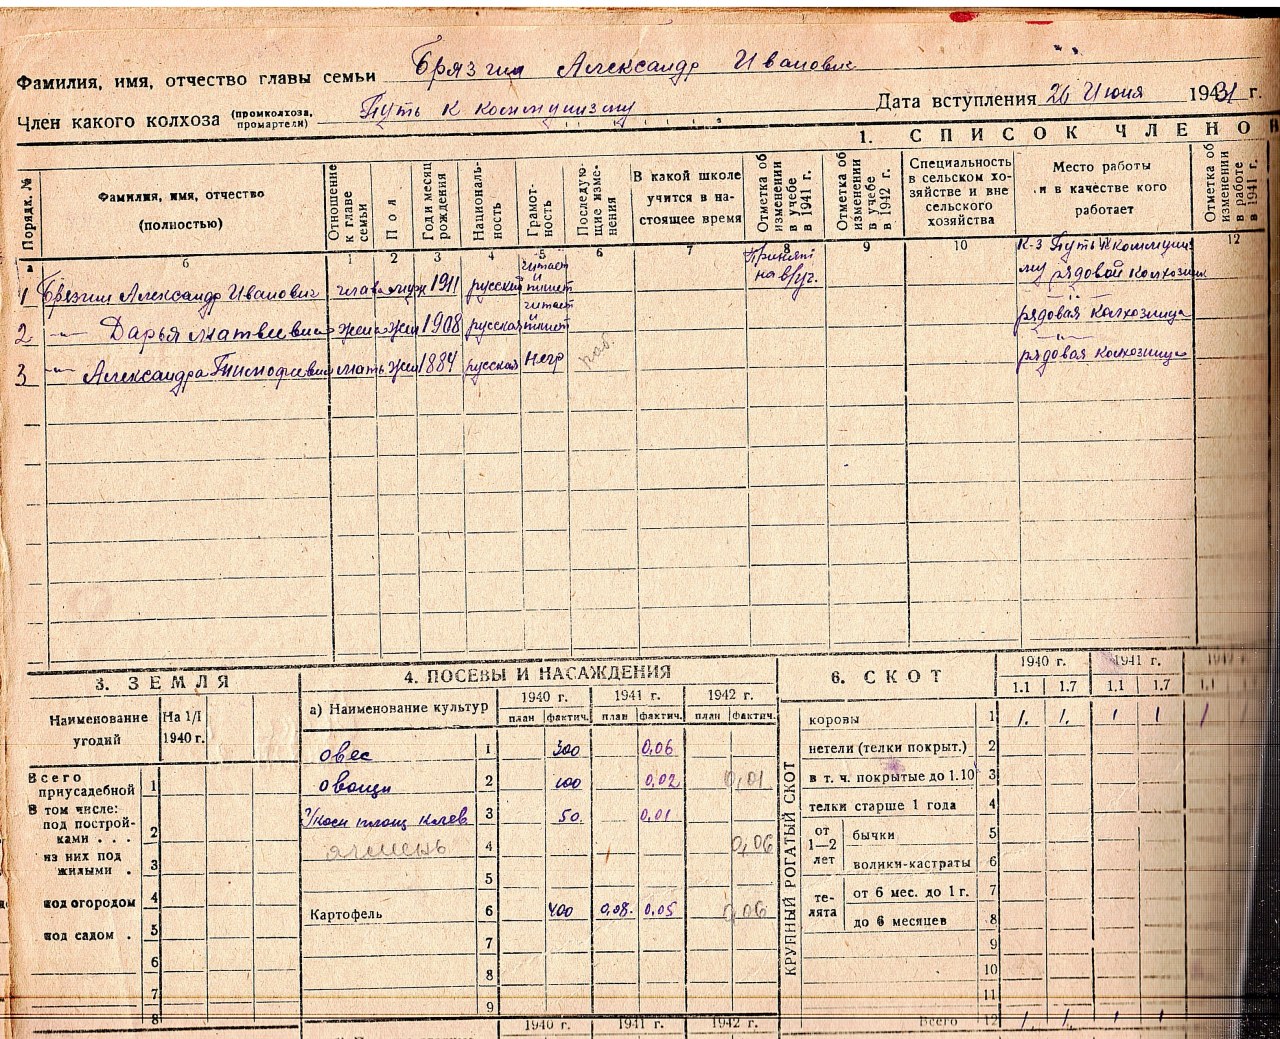 Фамилия, имя, отчество главы семьи Брязгин Александр Иванович
Член какого колхоза (промколхоза, промартели) Путь к коммунизму Дата вступления 26 Июня 1931 г.
1. СПИСОК ЧЛЕНО
Порядк. № Фамилия, имя, отчество (полностью) Отношение к главе семьи Пол Год и месяц рождения Националь-ность Грамот-ность Последую-щие изме-нения В какой школе учится в на-стоящее время Отметка об изменении в учебе в 1941 г. Отметка об изменении в учебе в 1942 г. Специальность в сельском хо-зяйстве и вне сельского хозяйства Место работы и в качестве кого работает Отметка об изменении в работе в 1941 г.
а б 1 2 3 4 5 6 7 8 9 10 11 12
1 Брязгин Александр Иванович глава муж 1911 русский читает и пишет Принят на в/уч. к-з Путь к коммуниз му рядовой колхозник
2 —"— Дарья Матвеевна жена жен 1908 русская читает и пишет —"— рядовая колхозница
3 —"— Александра Тимофеевна мать жен 1884 русская негр —"— рядовая колхозница
3. ЗЕМЛЯ
Наименование угодий На 1/I 1940 г.
Всего приусадебной 1
В том числе:
под построй-ками . . . 2
из них под жилыми . 3
под огородом 4
под садом . 5
6
7
8
4. ПОСЕВЫ И НАСАЖДЕНИЯ
а) Наименование культур 1940 г. 1941 г. 1942 г.
план фактич. план фактич. план фактич.
овес 1 300 0,06
овощи 2 100 0,02 0,01
Укосн площ клев 3 50 0,01
ячмень 4 0,06
5
Картофель 6 400 0,08 0,05 0,06
7
8
9
1940 г. 1941 г. 1942 г.
6. СКОТ
1940 г. 1941 г.
1.1 1.7 1.1 1.7 1.1
КРУПНЫЙ РОГАТЫЙ СКОТ
коровы 1 1. 1. 1 1 1
нетели (телки покрыт.) 2
в т. ч. покрытые до 1.10 3
телки старше 1 года 4
от 1—2 лет бычки 5
волики-кастраты 6
те-лята от 6 мес. до 1 г. 7
до 6 месяцев 8
9
10
11
Всего 12 1 1. 1 1 1